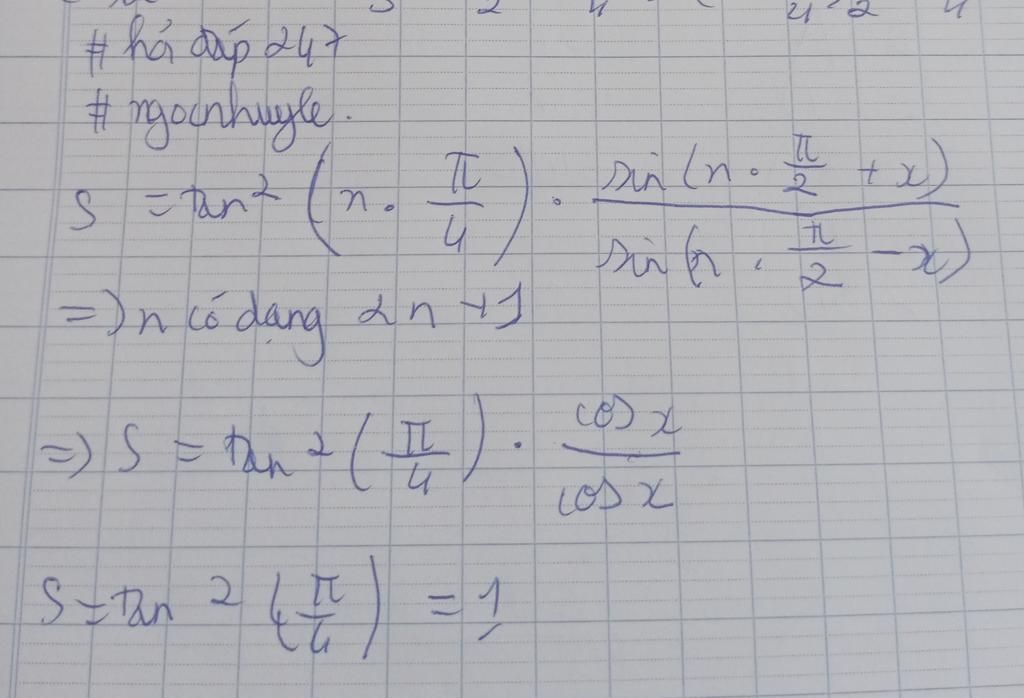 # hỏi đáp 247
# ngocnhuyle.
S = tan² (n . π/4) . sin(n . π/2 + x) / sin(n . π/2 - x)
=> n có dạng 2n + 1
=> S = tan² (π/4) . cos x / cos x
S = tan² (π/4) = 1